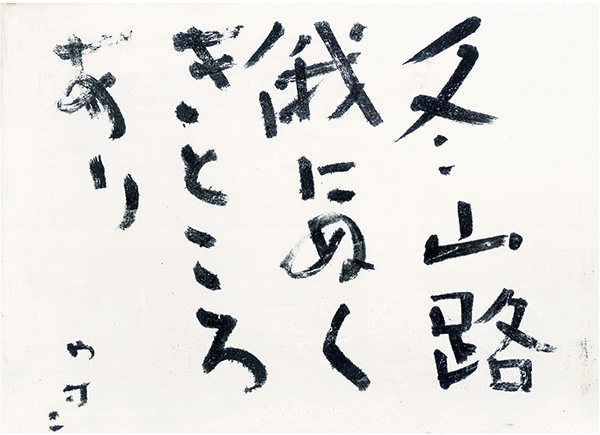 冬山路
俄にぬく
きところ
あり